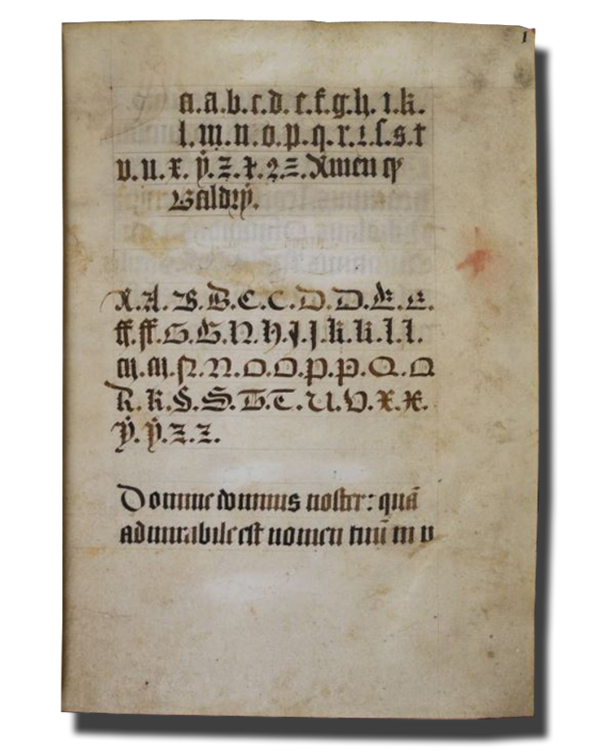 1
a.a.b.c.d.e.f.g.h.i.k.
l.m.n.o.p.q.r.ꝛ.ſ.s.t
v.u.x.ẏ.z. Amen ꝙ
Baldrẏ.
A.A.B.B.C.C.D.D.E.E.
ff.ff.G.G.H.H.I.J.K.K.L.L.
M.M.N.N.O.O.P.P.Q.Q
R.R.S.S.T.T.U.V.X.X.
Ẏ.Ẏ.Z.Z.
Domine dominus noſter: quā
admirabile eſt nomen tuū in v